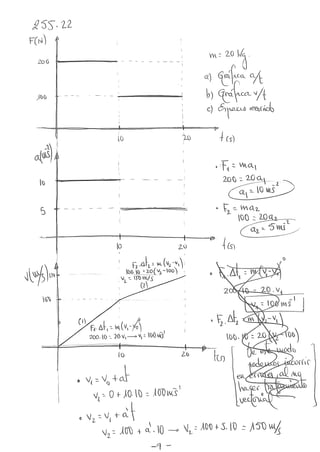 255.22
F(N)
200
100
10
20
t(s)
m = 20 kg.
a) Gráfica a/t
b) Gráfica v/t
c) Espacio recorrido
a(m/s²)
10
5
10
20
t(s)
• F₁ = ma₁
200 = 20a₁
a₁ = 10 ms⁻²
• F₂ = ma₂
100 = 20a₂
a₂ = 5 ms⁻²
V(m/s)
150
100
F₂·Δt₂ = m(v₂-v₁)
100·10 = 20(v₂-100)
v₂ = 150 m/s
(2)
(1)
F₁·Δt₁ = m(v₁-v₀)
200·10 = 20v₁ → v₁ = 100 m/s
10
20
t(s)
• F₁ Δt₁ = m(v₁-v₀)⁰
200·10 = 20·v₁
v₁ = 100 ms⁻¹
• F₂·Δt₂ = m(v₂-v₁)
100·10 = 20(v₂-100)
De este modo
podemos incurrir
en errores al no
hacer tratamiento
vectorial
• v₁ = v₀ + at
v₁ = 0 + 10·10 = 100 ms⁻¹
• v₂ = v₁ + a't
v₂ = 100 + a'·10 → v₂ = 100 + 5·10 = 150 m/s
-9-